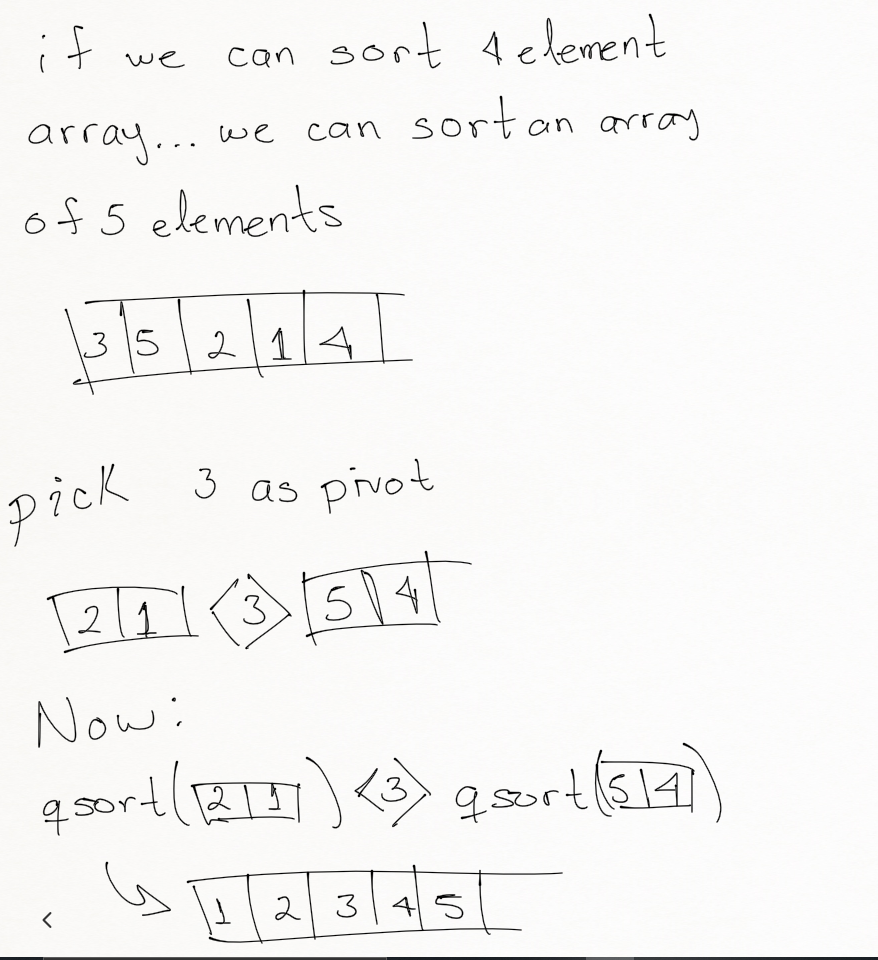 if we can sort 4 element
array... we can sort an array
of 5 elements
3 5 2 1 4
pick 3 as pivot
2 1 <3> 5 4
Now:
qsort(2 1) <3> qsort(5 4)
1 2 3 4 5